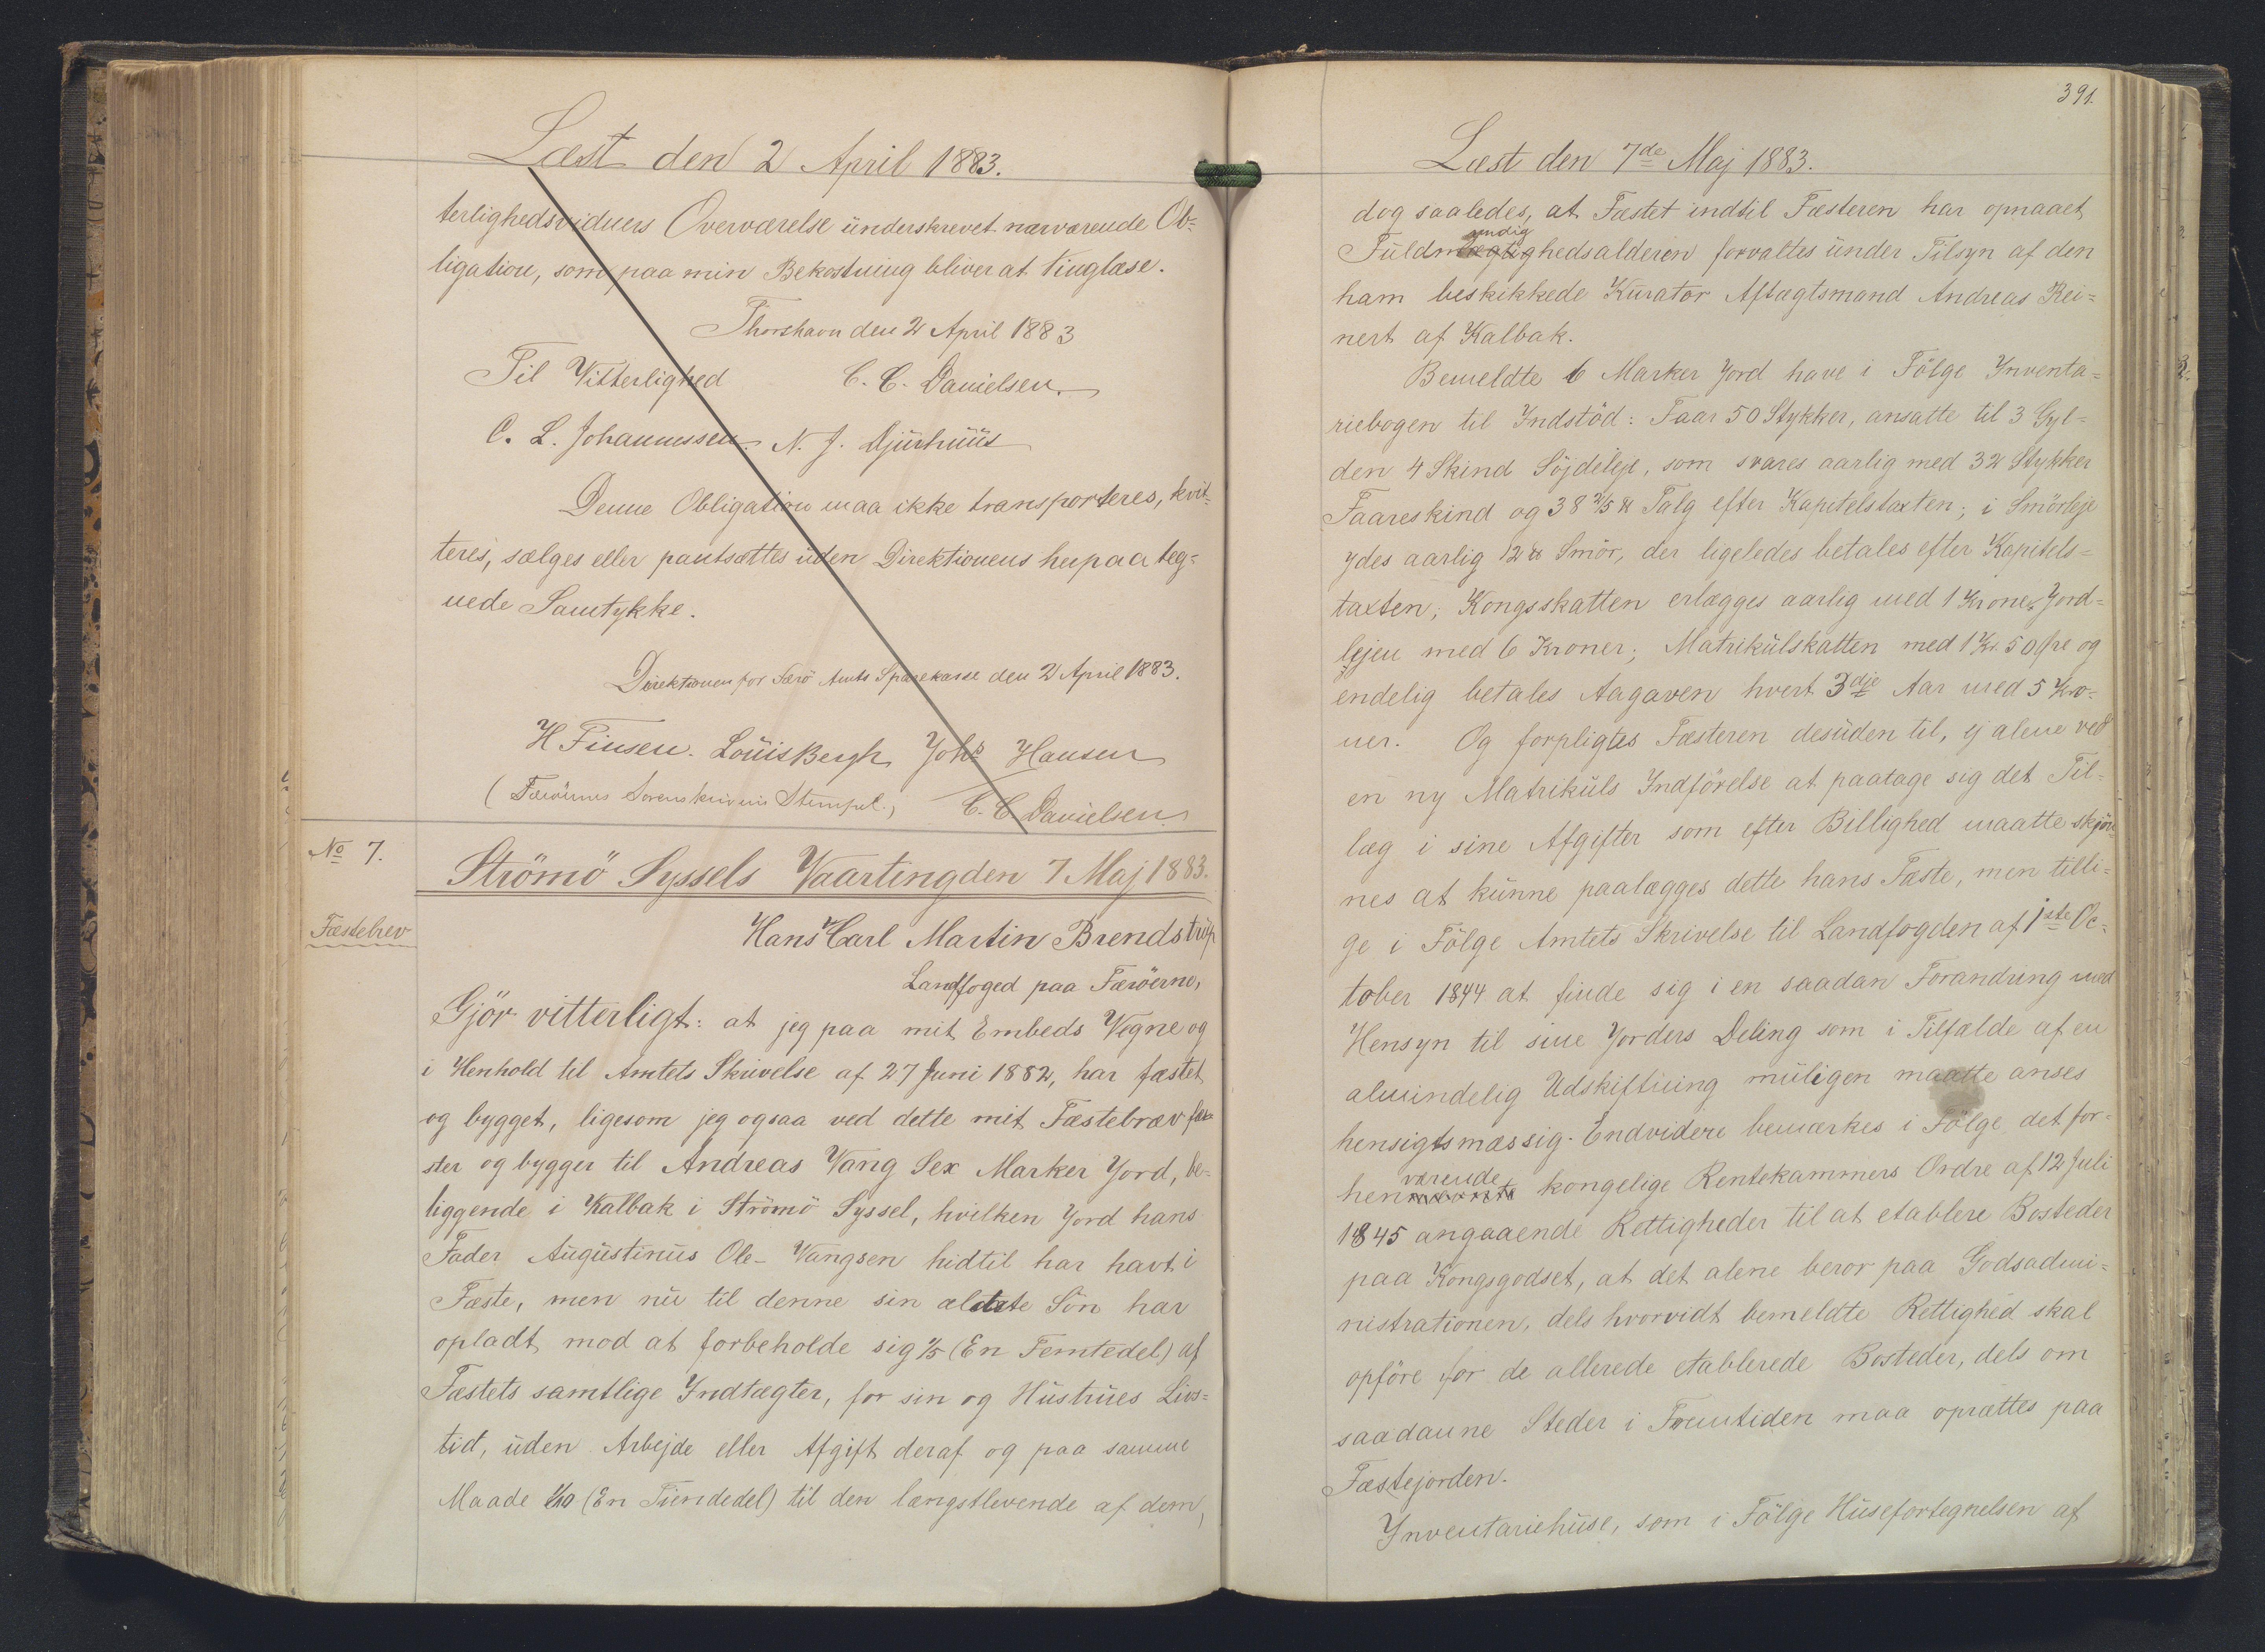 Læst den 2 April 1883.
terlighedsvidners Overværelse underskrevet nærværende Ob=
ligation, som paa min Bekostning bliver at tinglæse.
Thorshavn den 2 April 1883
Til Vitterlighed C. C. Danielsen.
C. L. Johannessen. N. J. Djurhuus
Denne Obligation maa ikke transporteres, kvit=
teres, sælges eller pantsættes uden Direktionens herpaa teg=
nede Samtykke.
Direktionen for Færö Amts Sparekasse den 2 April 1883.
H Finsen. Louis Bergh Johs Hansen
(Færöernes Sorenskriveris Stempel.) C. C. Danielsen.
No 7.
Strömö Syssels Vaarting den 7 Maj 1883.
Fæstebrev
Hans Carl Martin Brendstrup
Landfoged paa Færöerne,
Gjör vitterligt: at jeg paa mit Embeds Vegne og
i Henhold til Amtets Skrivelse af 27 Juni 1882, har fæstet
og bygget, ligesom jeg ogsaa ved dette mit Fæstebrev fæ=
ster og bygger til Andreas Vang Sex Marker Jord, be=
liggende i Kalbak i Strömö Syssel, hvilken Jord hans
Fader Augustinus Ole-Vangsen hidtil har havt i
Fæste, men nu til denne sin ældste Sön har
opladt mod at forbeholde sig 1/5 (En Femtedel) af
Fæstets samtlige Indtægter, for sin og Hustrues Livs=
tid, uden Arbejde eller Afgift deraf og paa samme
Maade 1/10 (En Tiendedel) til den længstlevende af dem,
391.
Læst den 7de Maj 1883.
dog saaledes, at Fæstet indtil Fæsteren har opnaaet
yndig
Fuldmægtighedsalderen forvaltes under Tilsyn af den
ham beskikkede Kurator Aftægtsmand Andreas Rei=
nert af Kalbak.
Bemeldte 6 Marker Jord have i Fölge Inventa=
riebogen til Indstöd: Faar 50 Stykker, ansatte til 3 Gyl=
den 4 Skind Söjdeleje, som svares aarlig med 32 Stykker
Faareskind og 38 2/5 ℔ Talg efter Kapitelstaxten; i Smörleje
ydes aarlig 12 ℔ Smör, der ligeledes betales efter Kapitels=
taxten; Kongsskatten erlægges aarlig med 1 Krone, Jord=
lejen med 6 Kroner; Matrikulskatten med 1 Kr. 50 Öre og
endelig betales Aagaven hvert 3die Aar med 5 Kro=
ner. Og forpligtes Fæsteren desuden til, ej alene ved
en ny Matrikuls Indförelse at paatage sig det Til=
læg i sine Afgifter som efter Billighed maatte skjön=
nes at kunne paalægges dette hans Fæste, men tilli=
ge i Fölge Amtets Skrivelse til Landfogden af 1ste Oc=
tober 1844 at finde sig i en saadan Forandring med
Hensyn til sine Jorders Deling som i Tilfælde af en
almindelig Udskiftning muligen maatte anses
hensigtsmæssig. Endvidere bemærkes i Fölge det for=
værende
hen kongelige Rentekammers Ordre af 12 Juli
1845 angaaende Rettigheder til at etablere Bosteder
paa Kongsgodset, at det alene beror paa Godsadmi=
nistrationen, dels hvorvidt bemeldte Rettighed skal
opföre for de allerede etablerede Bosteder, dels om
saadanne Steder i Fremtiden maa oprettes paa
Fæstejorden.
Inventariehuse, som i Fölge Husefortegnelsen af